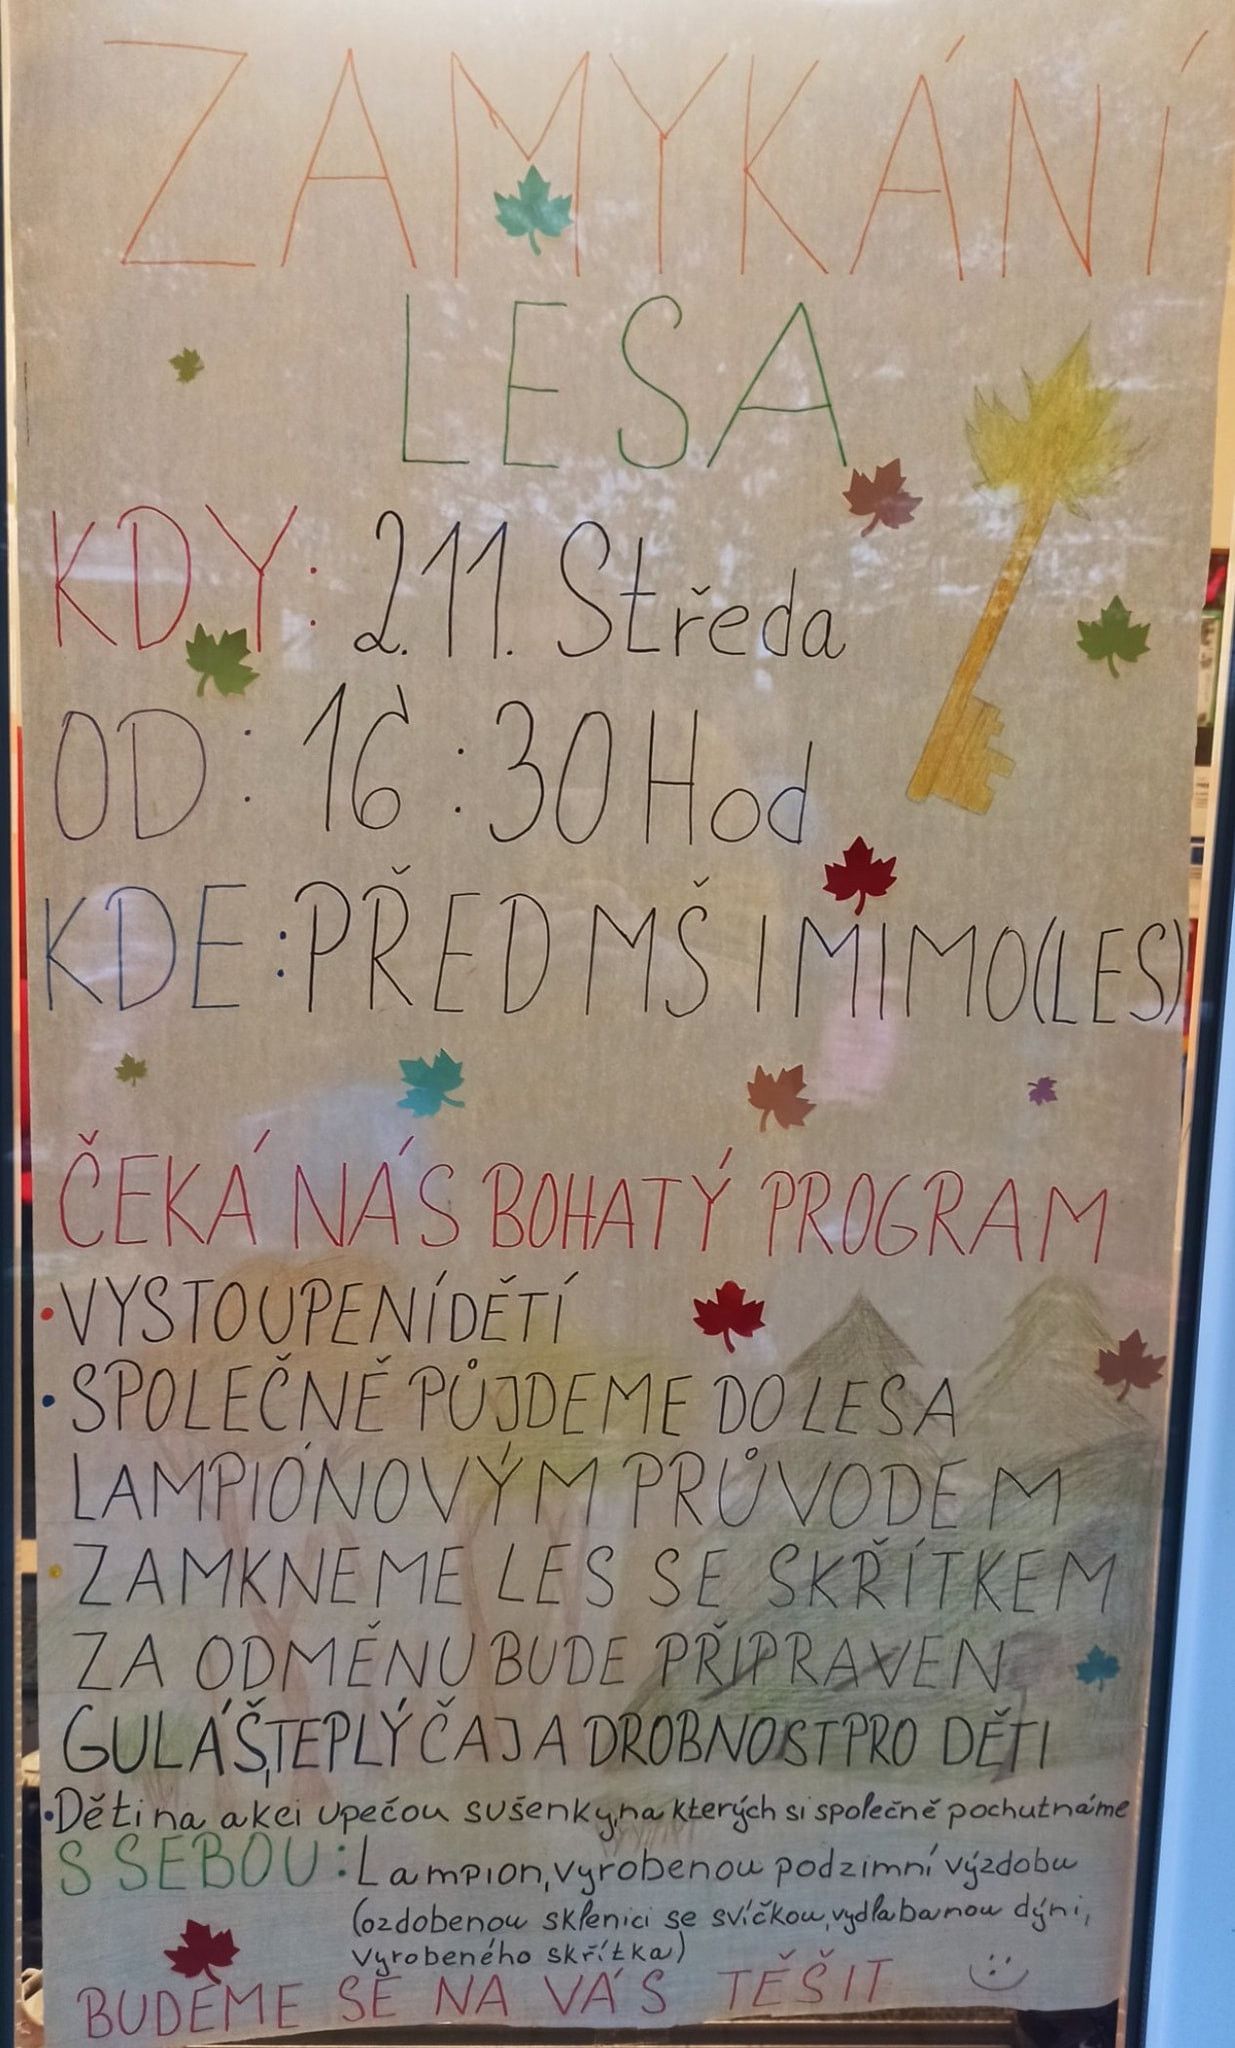 ZAMYKÁNÍ
LESA
KDY: 2.11. Středa
OD: 16:30 Hod
KDE: PŘED MŠ I MIMO(LES)
ČEKÁ NÁS BOHATÝ PROGRAM
•VYSTOUPENÍ DĚTÍ
•SPOLEČNĚ PŮJDEME DO LESA
LAMPIÓNOVÝM PRŮVODEM
•ZAMKNEME LES SE SKŘÍTKEM
ZA ODMĚNU BUDE PŘIPRAVEN
GULÁŠ, TEPLÝ ČAJ A DROBNOST PRO DĚTI
•Děti na akci upečou sušenky, na kterých si společně pochutnáme
S SEBOU: Lampion, vyrobenou podzimní výzdobu
(ozdobenou sklenici se svíčkou, vydlabanou dýni,
vyrobeného skřítka)
BUDEME SE NA VÁS TĚŠIT